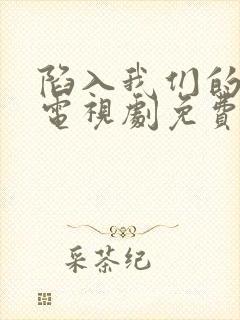 陷入我们的
電視劇免費
采茶纪